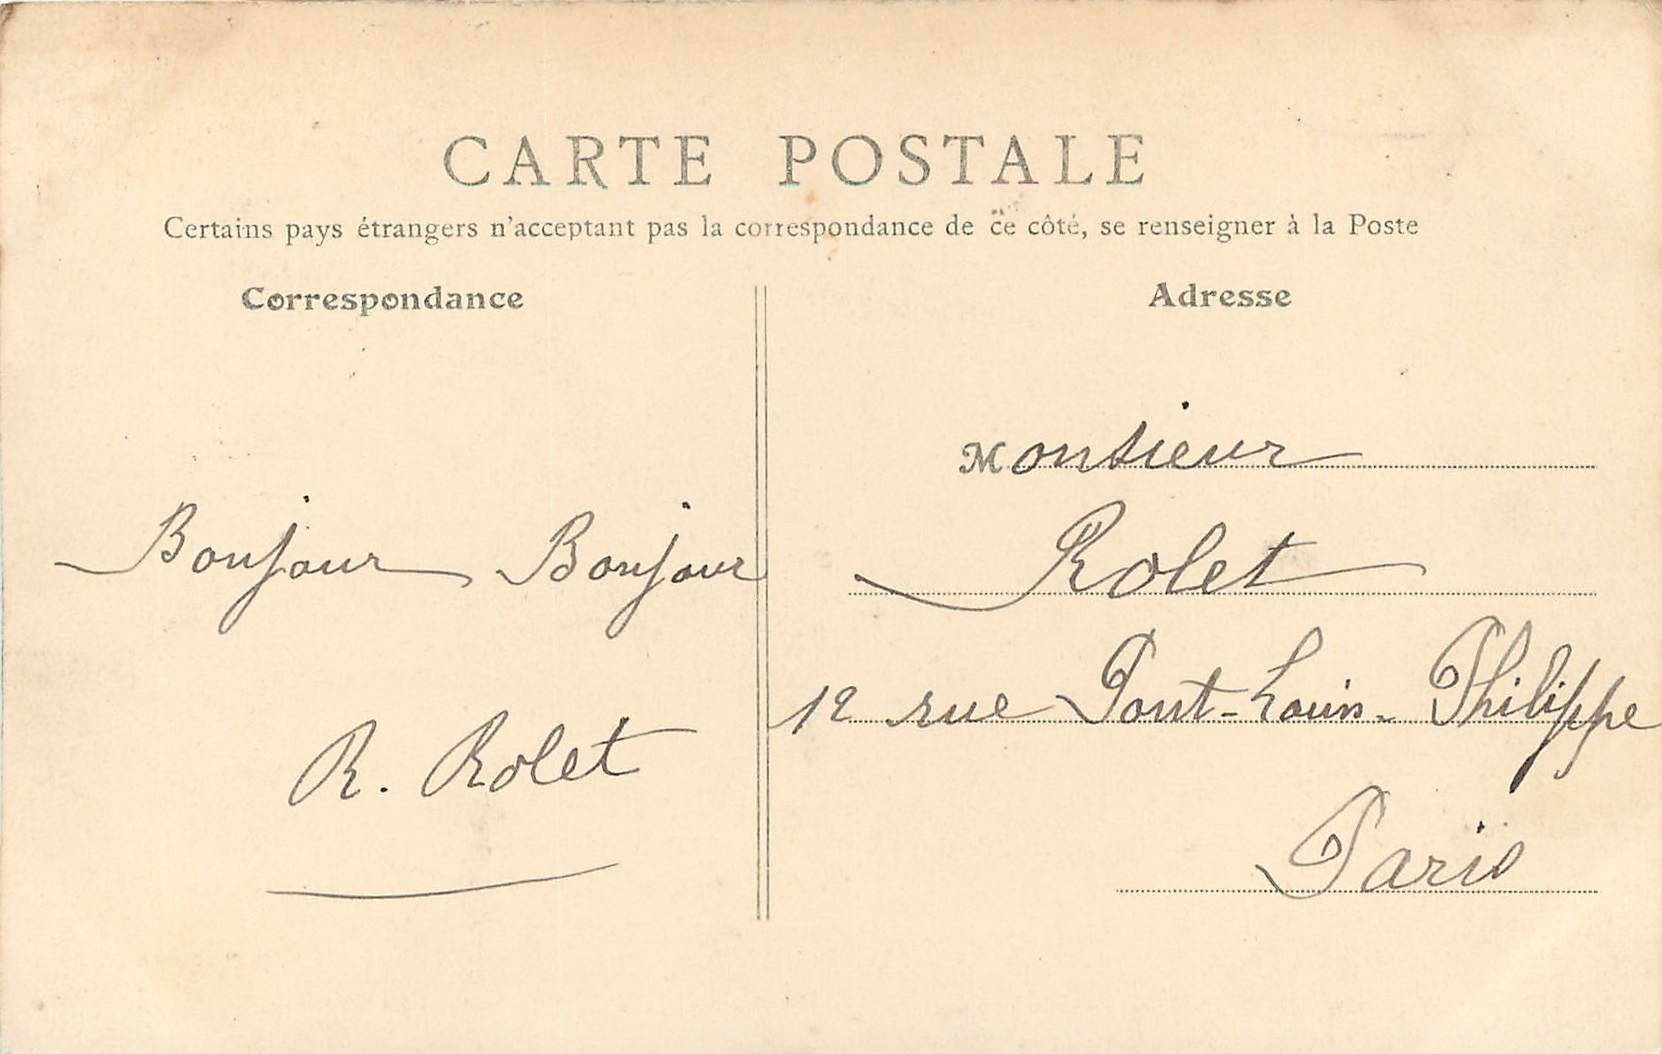 CARTE POSTALE
Certains pays étrangers n'acceptant pas la correspondance de ce côté, se renseigner à la Poste
Correspondance
Bonjour Bonjour
R. Rolet
Adresse
Monsieur
Rolet
12 rue Pont-Louis-Philippe
Paris